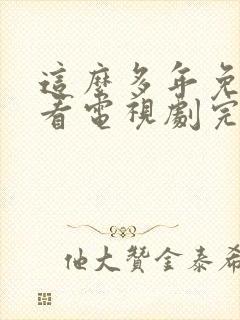 這麼多年免
看電視劇完
他大贊金泰希